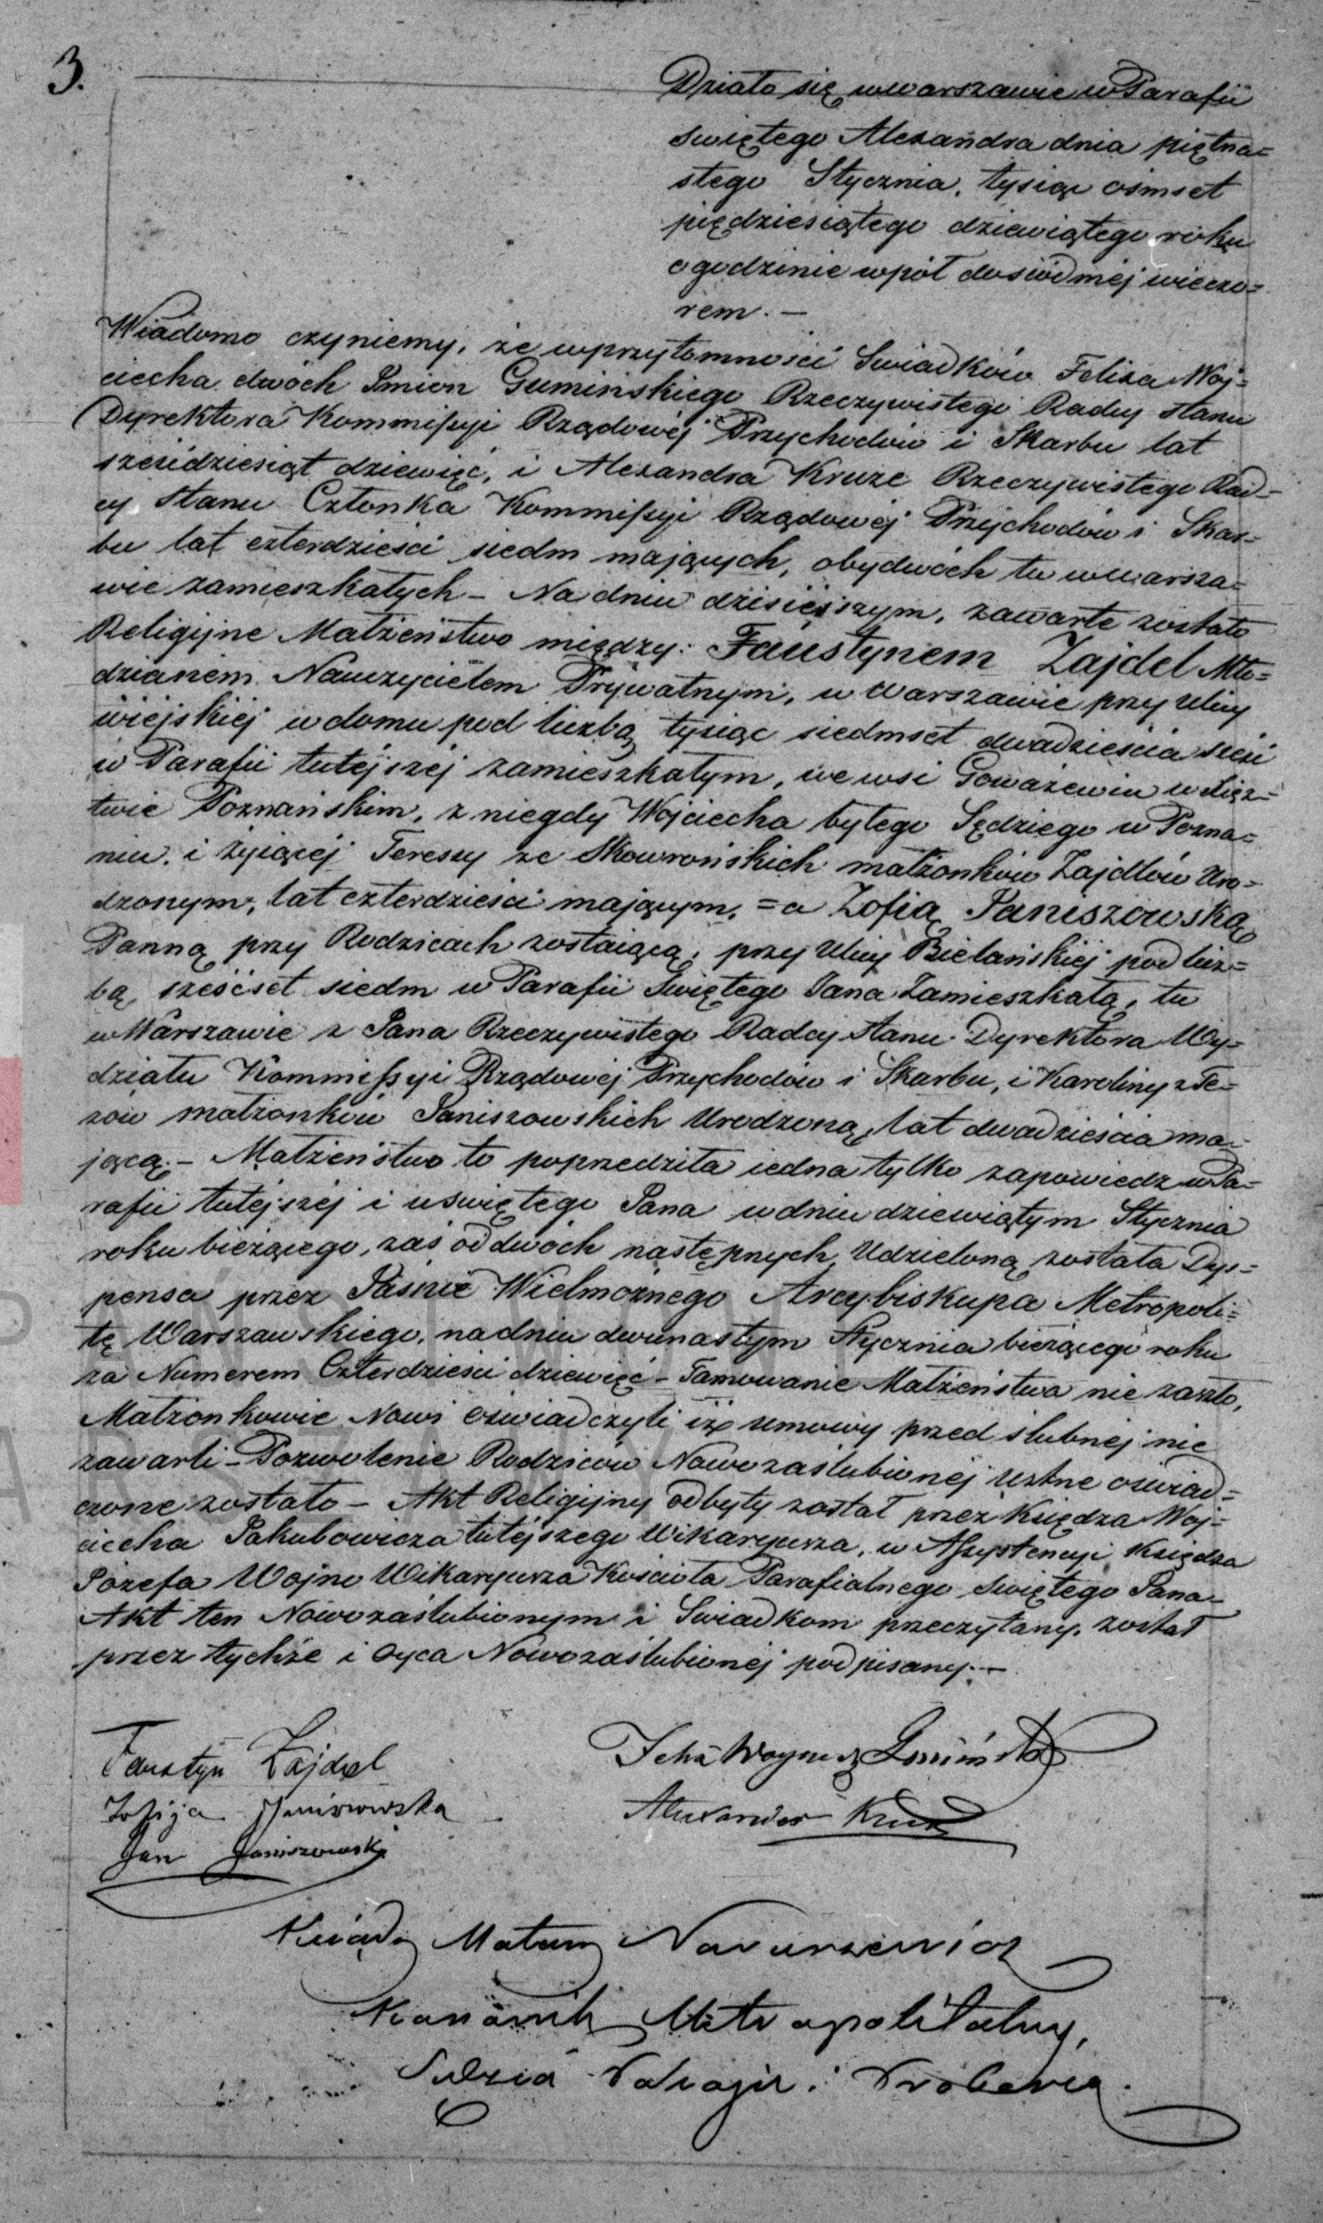 3.
Działo się w Warszawie w Parafii
Swiętego Alexandra dnia piętna=
stego Stycznia, tysiąc ośmset
pięćdziesiątego dziewiątego roku
o godzinie wpół do siódmej wieczo=
rem. —
Wiadomo czyniemy, że w przytomności Swiadków Felixa Woj=
ciecha dwóch Imion Gumińskiego Rzeczywistego Radcy Stanu
Dyrektora Kommissyi Rządowéj Przychodów i Skarbu lat
sześćdziesiąt dziewięć, i Alexandra Kruze Rzeczywistego Rad=
cy Stanu Członka Kommissyi Rządowéj Przychodów i Skar=
bu lat czterdzieści siedm mających, obydwóch tu w Warsza=
wie zamieszkałych – Na dniu dzisiejszym, zawarte zostało
Religijne Małżeństwo między: Faustynem Zajdel Mło=
dzianem Nauczycielem Prywatnym, w Warszawie przy Ulicy
Wiejskiéj w domu pod liczbą tysiąc siedmset dwadzieścia sześć
w Parafii tutéjszéj zamieszkałym, we wsi Gowarzewiu w Xięz=
twie Poznańskim, z niegdy Wojciecha byłego Sędziego w Pozna=
niu, i żyiącéj Teressy ze Skowrońskich małżonków Zajdlów Uro=
dzonym, lat czterdzieści mającym, = a Zofią Janiszowską
Panną przy Rodzicach zostaiącą, przy Ulicy Bielańskiéj pod licz=
bą sześćset siedm w Parafii Swiętego Jana Zamieszkałą, tu
w Warszawie z Jana Rzeczywistego Radcy Stanu Dyrektora Wy=
działu Kommissyi Rządowéj Przychodów i Skarbu, i Karoliny z Te=
zów małżonków Janiszowskich Urodzoną, lat dwadzieścia ma=
jącą. – Małżeństwo to poprzedziła iedna tylko zapowiedz w Pa=
rafii tutéjszéj i u Swiętego Jana w dniu dziewiątym Stycznia
roku bieżącego, zaś od dwóch następnych Udzieloną została Dys=
pensa przez Jaśnie Wielmożnego Arcybiskupa Metropoli=
tę Warszawskiego, na dniu dwunastym Stycznia bieżącego roku
za Numerem Czterdzieści dziewięć – Tamowanie Małżeństwa nie zaszło,
Małżonkowie Nowi oświadczyli iż umowy przed ślubnej nie
zawarli – Pozwolenie Rodziców Nowozaślubionéj ustne oświad=
czone zostało – Akt Religijny odbyty został przez Księdza Woj=
ciecha Jakubowicza tutéjszego Wikaryusza, w Assystencyi Księdza
Józefa Wojno Wikaryusza Kościoła Parafialnego Swiętego Jana –
Akt ten Nowozaślubionym i Swiadkom przeczytany, został
przez tychże i Oyca Nowozaślubionéj podpisany. –
Faustyn Zajdel
Zofija Janiszowska
Jan Janiszowski
Felix Woyciech Gumiński
Alexander Kruze
Ksiądz Mateusz Naruszewicz
Kanonik Metropolitalny,
PAŃSTWOWE
WARSZAWY